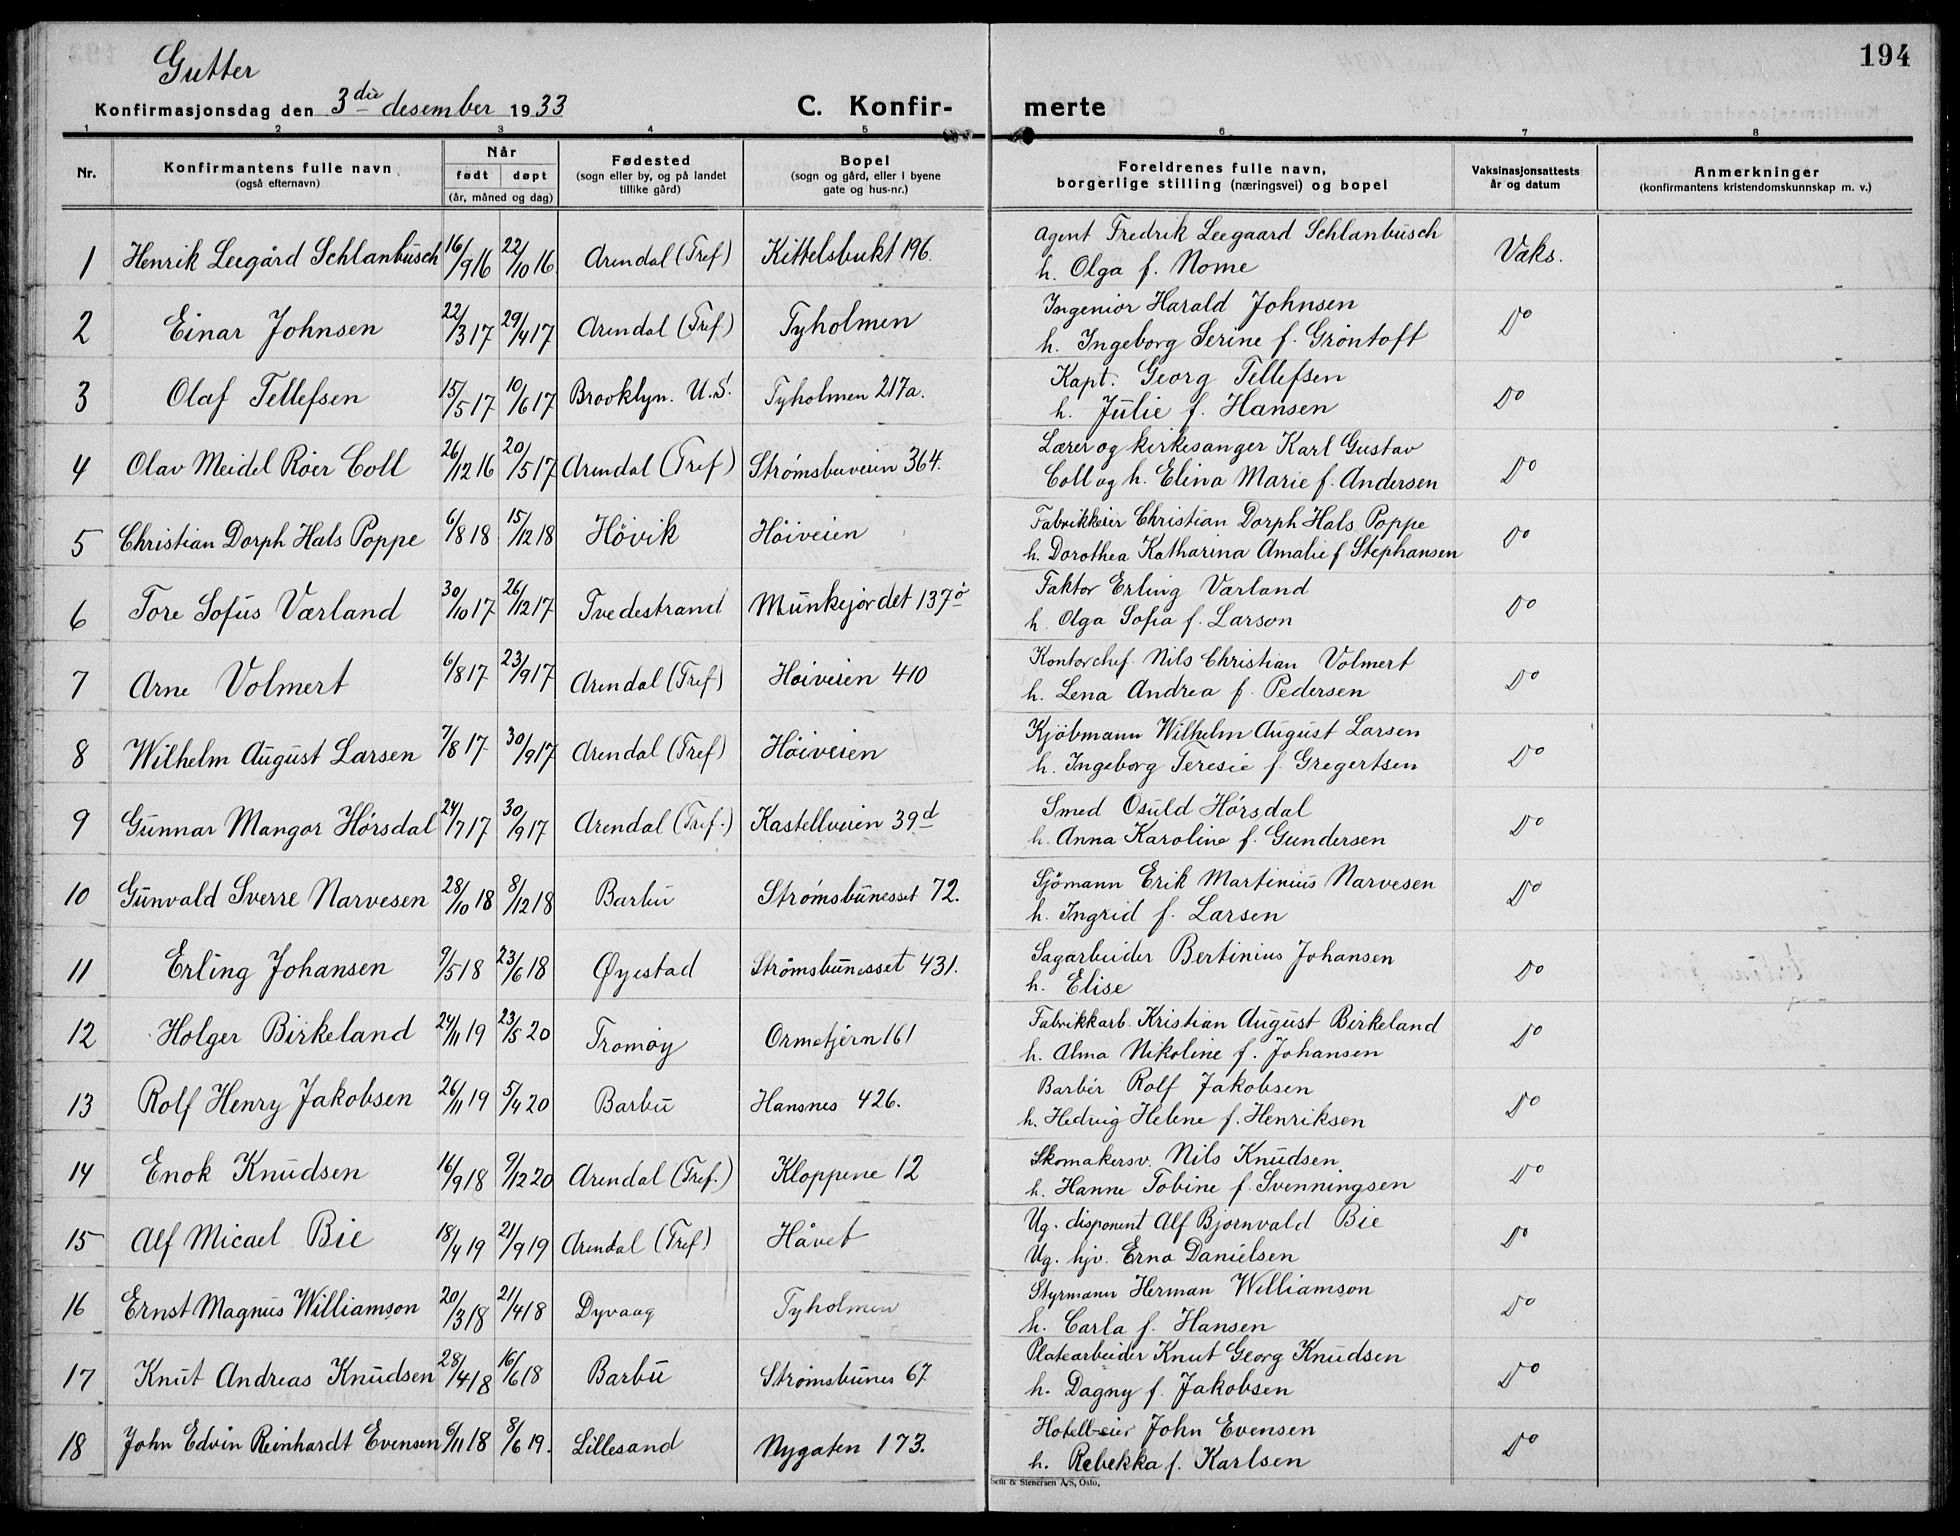 194
Gutter
Konfirmasjonsdag den 3die desember 1933 C. Konfir- merte
1 2 3 4 5 6 7 8
Nr. Konfirmantens fulle navn (også efternavn) Når født døpt (år, måned og dag) Fødested (sogn eller by, og på landet tillike gård) Bopel (sogn og gård, eller i byene gate og hus-nr.) Foreldrenes fulle navn, borgerlige stilling (næringsvei) og bopel Vaksinasjonsattests år og datum Anmerkninger (konfirmantens kristendomskunnskap m. v.)
1 Henrik Leegård Schlanbusch 16/9 16 22/10 16 Arendal (Tref) Kittelsbukt 196. Agent Fredrik Leegaard Schlanbusch
h. Olga f. Nome Vaks.
2 Einar Johnsen 22/3 17 29/4 17 Arendal (Tref.) Tyholmen Ingeniør Harald Johnsen
h. Ingeborg Serine f. Grøntoft Do
3 Olaf Tellefsen 15/5 17 10/6 17 Brooklyn. U.S. Tyholmen 217a. Kapt. Georg Tellefsen
h. Julie f. Hansen Do
4 Olav Meidel Røer Coll 26/12 16 20/5 17 Arendal (Tref) Strømsbuveien 364. Lærer og kirkesanger Karl Gustav
Coll og h. Elina Marie f. Andersen Do
5 Christian Dorph Hals Poppe 6/8 18 15/12 18 Høvik Høiveien Fabrikkeier Christian Dorph Hals Poppe
h. Dorothea Katharina Amalie f Stephansen Do
6 Tore Sofus Værland 30/10 17 26/12 17 Tvedestrand Munkejordet 137ö Faktor Erling Værland
h. Olga Sofia f. Larson Do
7 Arne Volmert 6/8 17 23/9 17 Arendal (Tref) Høiveien 410 Kontorchef. Nils Christian Volmert
h. Lena Andrea f. Pedersen Do
8 Wilhelm August Larsen 7/8 17 30/9 17 Arendal (Tref) Høiveien Kjøbmann Wilhelm August Larsen
h. Ingeborg Teresie f. Gregertsen Do
9 Gunnar Mangor Hørsdal 24/7 17 30/9 17 Arendal (Tref.) Kastellveien 39d Smed Osuld Hørsdal
h. Anna Karoline f. Gundersen Do
10 Gunvald Sverre Narvesen 28/10 18 8/12 18 Barbu Strømsbunesset 72. Sjømann Erik Martinius Narvesen
h. Ingrid f. Larsen Do
11 Erling Johansen 9/5 18 23/6 18 Øyestad Strømsbunesset 431. Sagarbeider Bertinius Johansen
h. Elise Do
12 Holger Birkeland 24/11 19 23/5 20 Tromøy Ormetjern 161 Fabrikkarb. Kristian August Birkeland
h. Alma Nikoline f. Johansen Do
13 Rolf Henry Jakobsen 26/11 19 5/4 20 Barbu Hansnes 426. Barbér Rolf Jakobsen
h. Hedvig Helene f. Henriksen Do
14 Enok Knudsen 16/9 18 9/12 20 Arendal (Tref.) Kloppene 12 Skomakersv. Nils Knudsen
h. Hanne Tobine f. Svenningsen Do
15 Alf Micael Bie 18/4 19 21/9 19 Arendal (Tref) Håvet Ug. disponent Alf Bjørnvald Bie
Ug. hjv. Erna Danielsen Do
16 Ernst Magnus Williamson 20/3 18 21/4 18 Dyvaag Tyholmen Styrmann Herman Williamson
h. Carla f. Hansen Do
17 Knut Andreas Knudsen 28/4 18 16/6 18 Barbu Strømsbunes 67. Platearbeider Knut Georg Knudsen
h. Dagny f. Jakobsen Do
18 John Edvin Reinhardt Evensen 6/11 18 8/6 19. Lillesand Nygaten 173. Hotell-eier John Evensen
h. Rebekka f. Karlsen Do
& Stenersen A/S, Oslo.